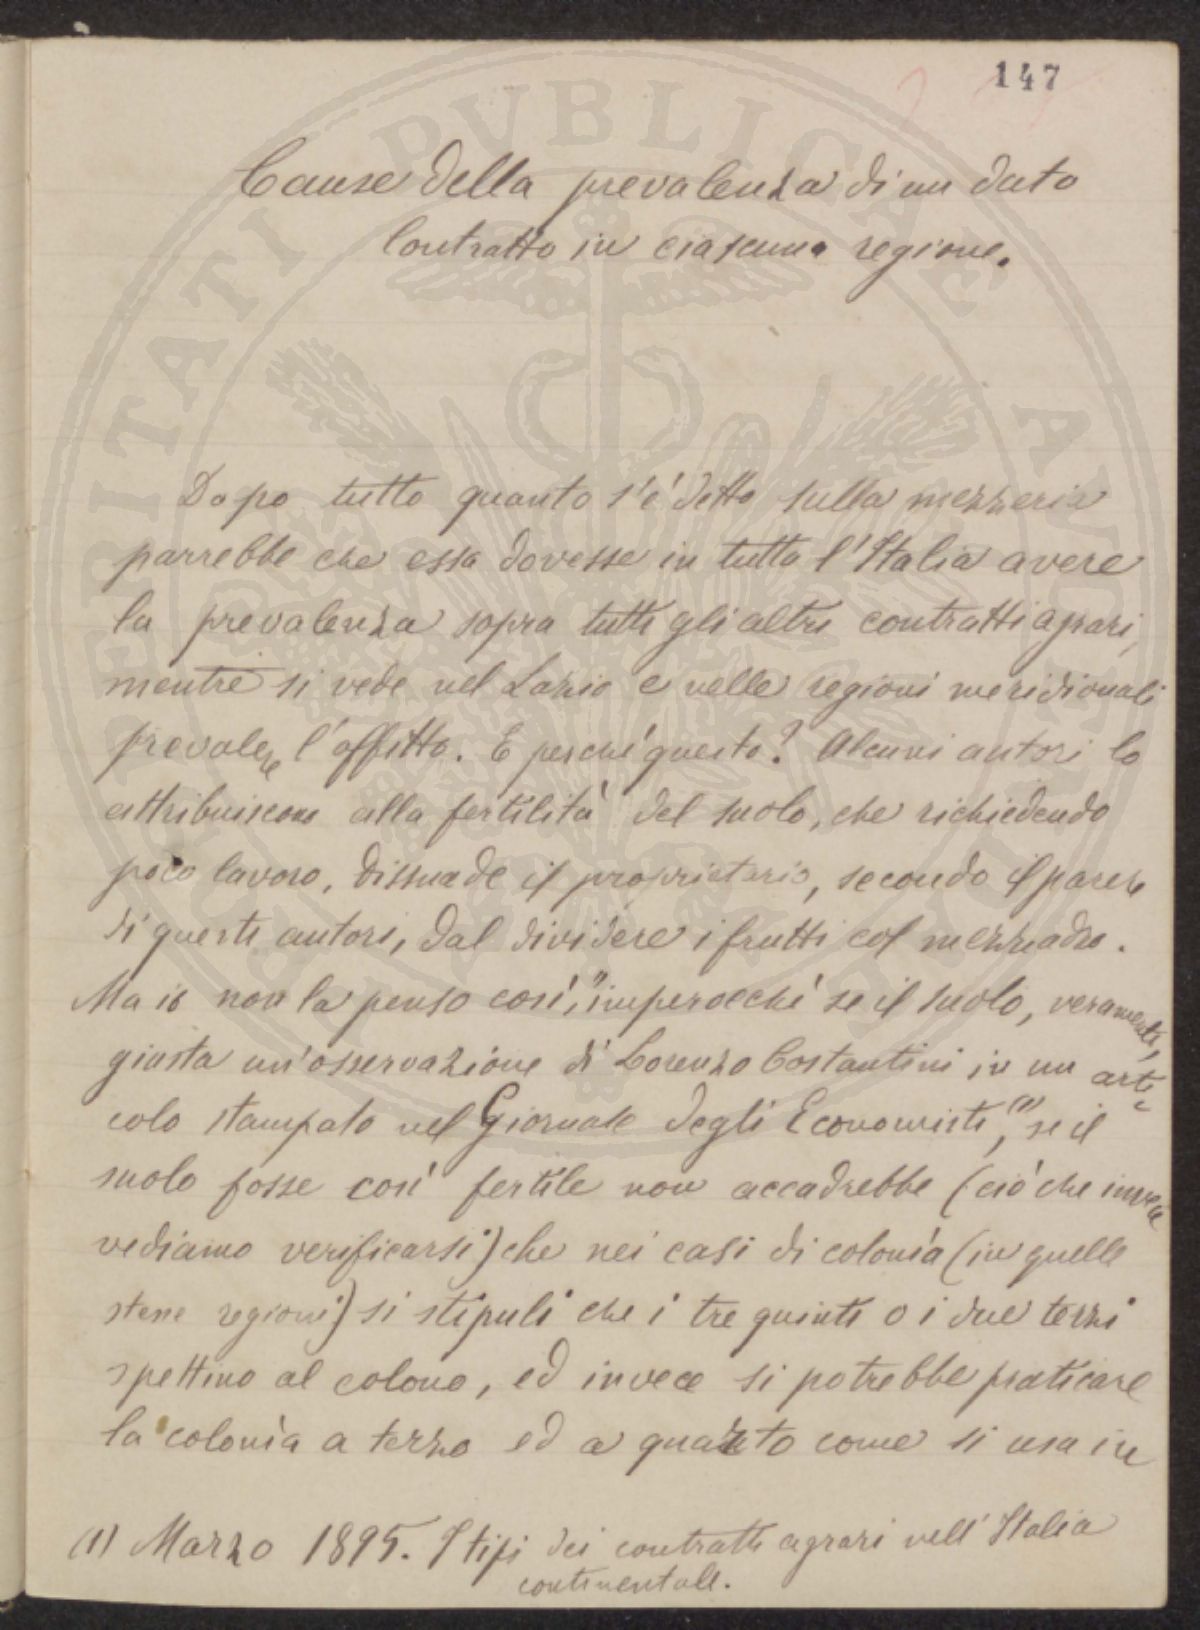 147
Cause della prevalenza di un dato
Contratto in ciascuna regione.
Dopo tutto quanto s'è detto sulla mezzeria
parrebbe che essa dovesse in tutta l'Italia avere
la prevalenza sopra tutti gli altri contratti agrari,
mentre si vede nel Lazio e nelle regioni meridionali
prevalere l'affitto. E perché questo? Alcuni autori lo
attribuiscono alla fertilità del suolo, che richiedendo
poco lavoro, dissuade il proprietario, secondo il parere
di questi autori, dal dividere i frutti col mezzadro.
Ma io non la penso così, "imperocché se il suolo, veramente,
giusta un'osservazione di Lorenzo Costantini in un arti-
colo stampato nel Giornale degli Economisti,(1) se il
suolo fosse così fertile non accadrebbe (ciò che invece
vediamo verificarsi) che nei casi di colonìa (in quelle
stesse regioni) si stipuli che i tre quinti o i due terzi
spettino al colono, ed invece si potrebbe praticare
la colonìa a terzo ed a quarto come si usa in
(1) Marzo 1895. I tipi dei contratti agrari nell'Italia
continentale.
PVBLICAE